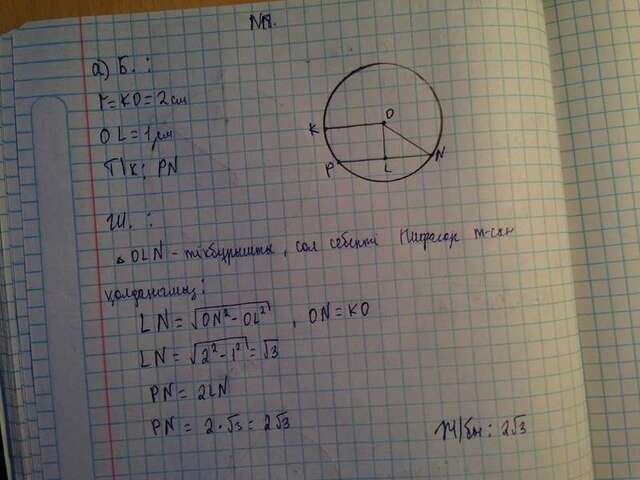 №1.
а) Б. :
r = KO = 2 см
OL = 1 см
Т/к: PN
Ш. :
△ OLN - тікбұрышты, сол себепті Пифагор т-сын
қолданамыз:
LN = √ON² - OL² , ON = KO
LN = √2² - 1² = √3
PN = 2LN
PN = 2 · √3 = 2√3
Ж/бы: 2√3
K
P
O
L
N